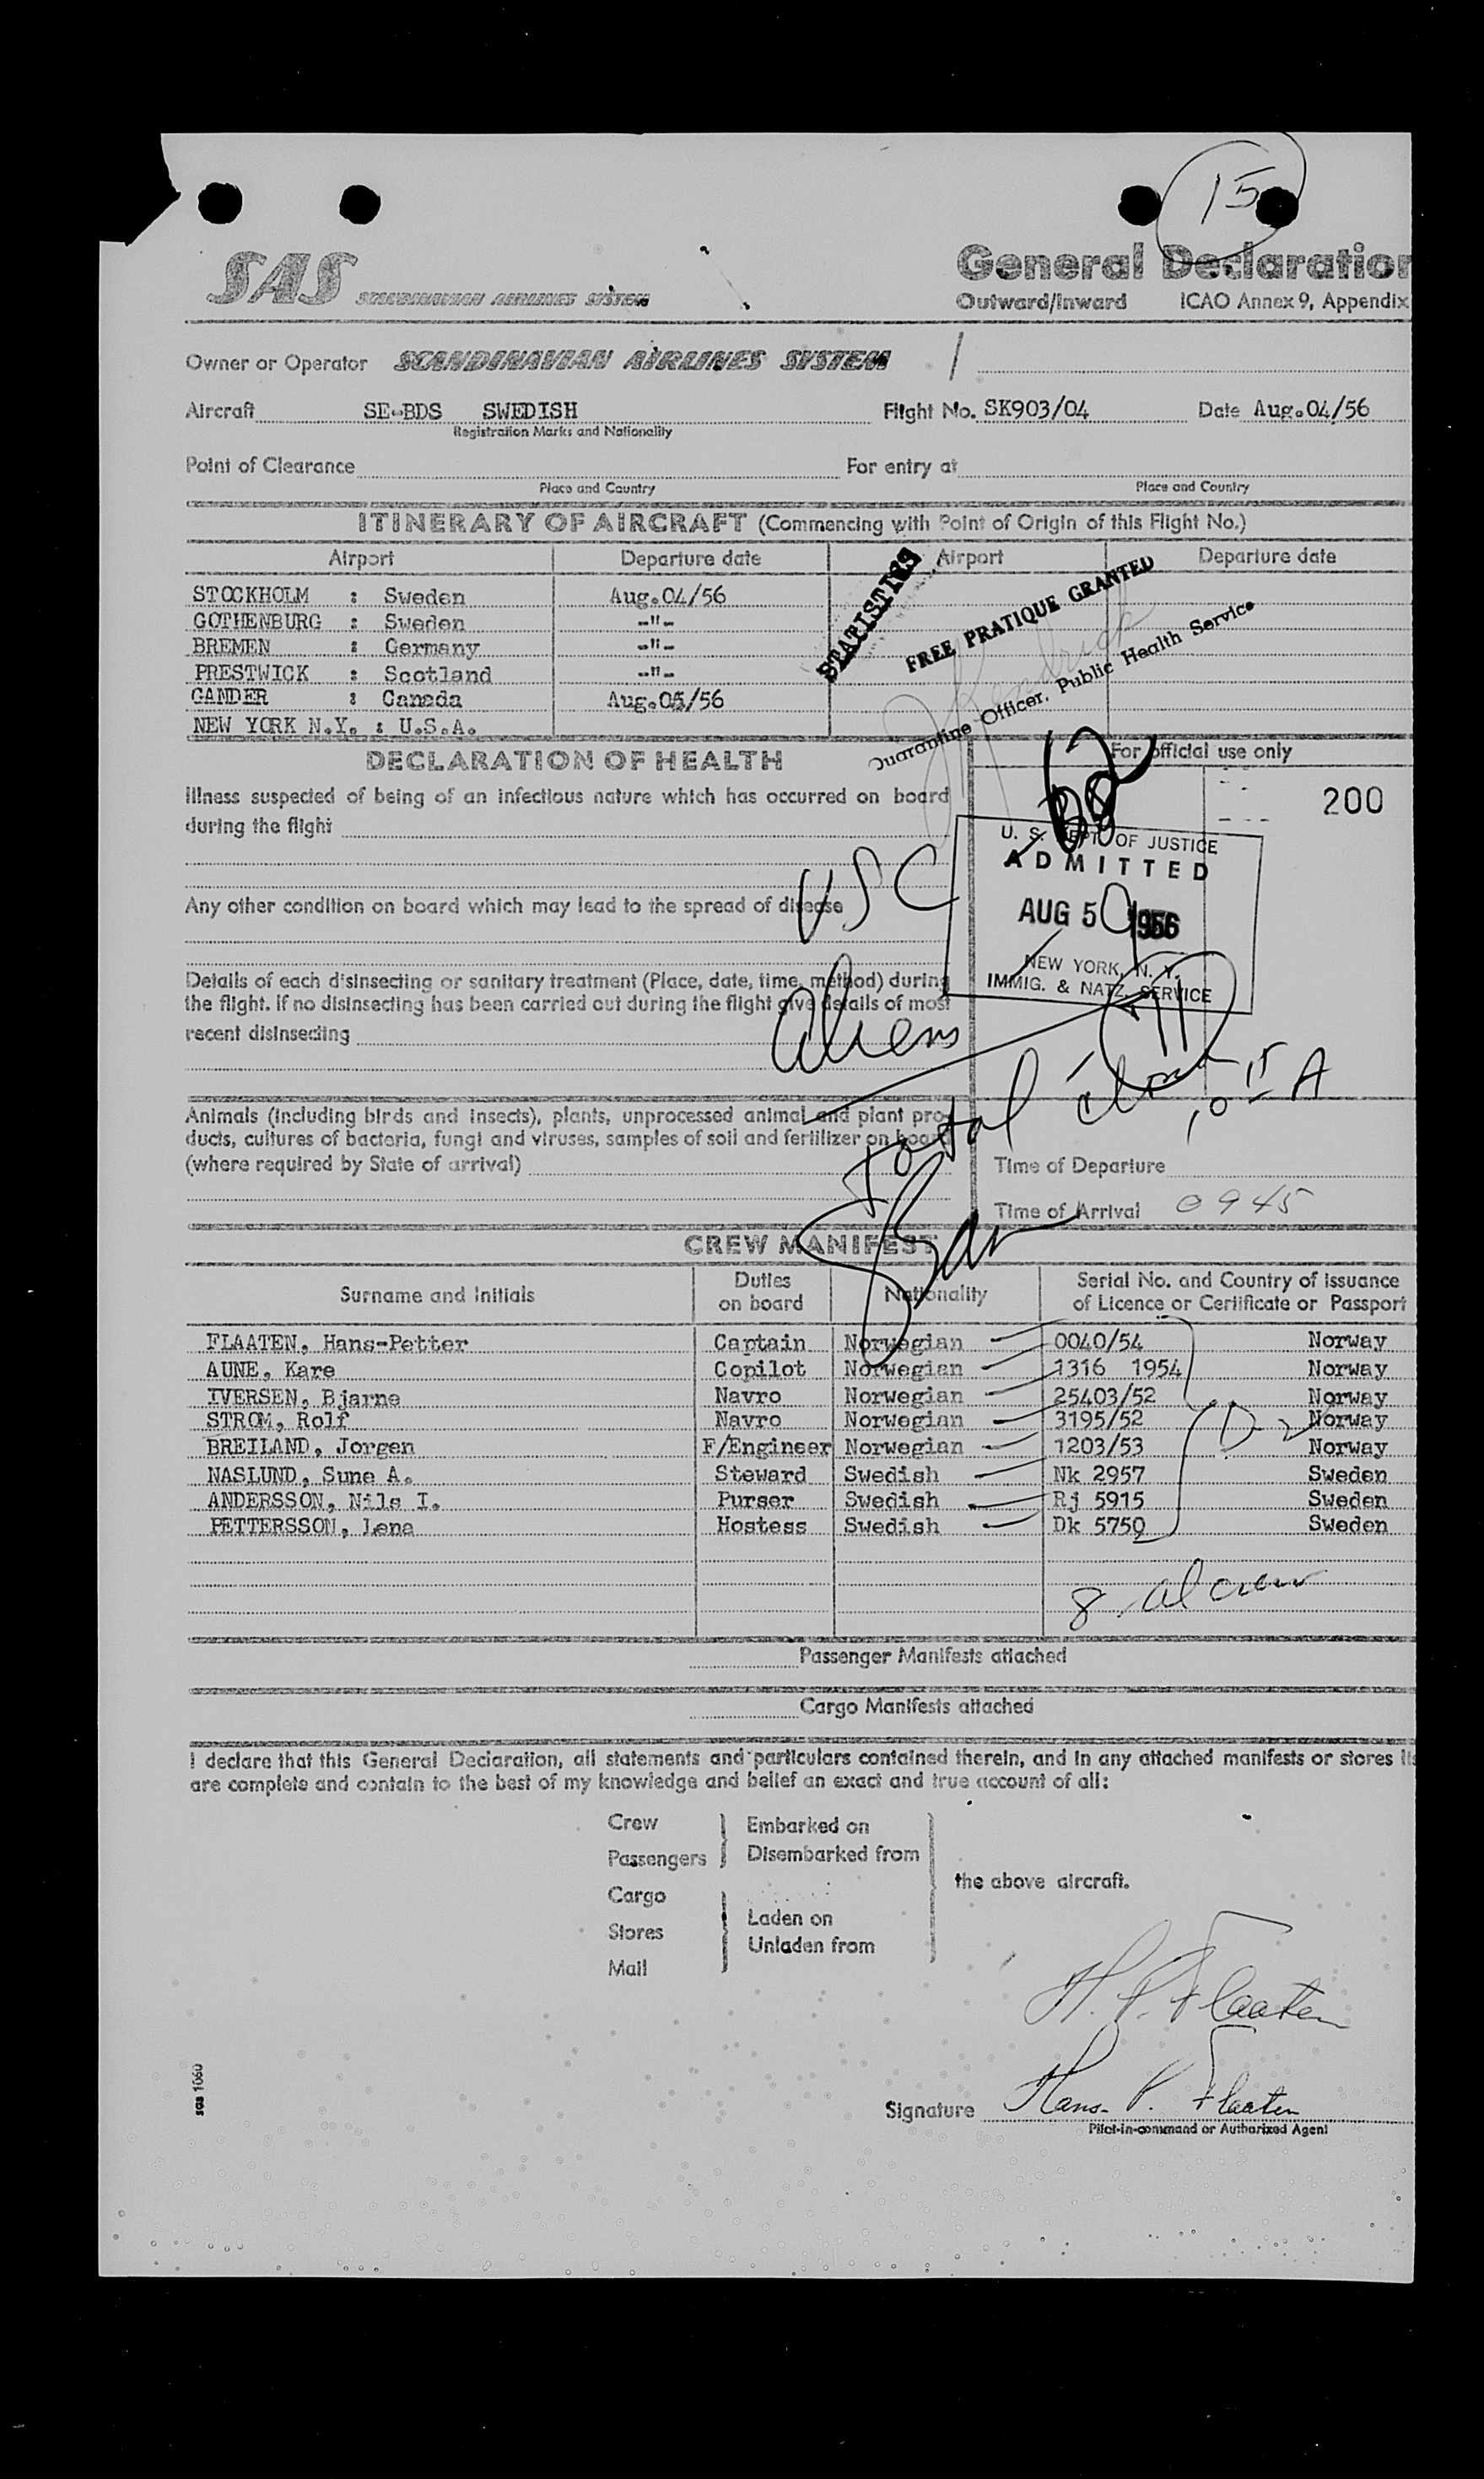 15
SAS SCANDINAVIAN AIRLINES SYSTEM
General Declaration
Outward/Inward ICAO Annex 9, Appendix
Owner or Operator SCANDINAVIAN AIRLINES SYSTEM
Aircraft SE-BDS SWEDISH Flight No. SK903/04 Date Aug.04/56
Registration Marks and Nationality
Point of Clearance For entry at
Place and Country Place and Country
ITINERARY OF AIRCRAFT (Commencing with Point of Origin of this Flight No.)
Airport Departure date Airport Departure date
STOCKHOLM : Sweden Aug.04/56
GOTHENBURG : Sweden -"-
BREMEN : Germany -"-
PRESTWICK : Scotland -"-
GANDER : Canada Aug.05/56
NEW YORK N.Y. : U.S.A.
STATISTICS
FREE PRATIQUE GRANTED
Quarantine Officer. Public Health Service
DECLARATION OF HEALTH
For official use only
Illness suspected of being of an infectious nature which has occurred on board
during the flight
200
U. S. DEPT. OF JUSTICE
ADMITTED
AUG 5 1956
NEW YORK, N. Y.
IMMIG. & NATZ. SERVICE
USC
Any other condition on board which may lead to the spread of disease
Details of each disinsecting or sanitary treatment (Place, date, time, method) during
the flight. If no disinsecting has been carried out during the flight give details of most
recent disinsecting
Aliens
11
Total
Animals (including birds and insects), plants, unprocessed animal and plant pro-
ducts, cultures of bacteria, fungi and viruses, samples of soil and fertilizer on board
(where required by State of arrival)
Time of Departure
Time of Arrival 0945
CREW MANIFEST
Surname and Initials Duties on board Nationality Serial No. and Country of Issuance of Licence or Certificate or Passport
FLAATEN, Hans-Petter Captain Norwegian 0040/54 Norway
AUNE, Kare Copilot Norwegian 1316 1954 Norway
IVERSEN, Bjarne Navro Norwegian 25403/52 Norway
STROM, Rolf Navro Norwegian 3195/52 Norway
BREILAND, Jorgen F/Engineer Norwegian 1203/53 Norway
NASLUND, Sune A. Steward Swedish Nk 2957 Sweden
ANDERSSON, Nils I. Purser Swedish Rj 5915 Sweden
PETTERSSON, Lena Hostess Swedish Dk 5750 Sweden
D-2
8 al crew
Passenger Manifests attached
Cargo Manifests attached
I declare that this General Declaration, all statements and particulars contained therein, and in any attached manifests or stores
are complete and contain to the best of my knowledge and belief an exact and true account of all:
Crew
Passengers
Embarked on
Disembarked from
Cargo
Stores
Mail
Laden on
Unladen from
the above aircraft.
H. P. Flaaten
Signature Hans P. Flaaten
Pilot-in-command or Authorized Agent
SAS 1060